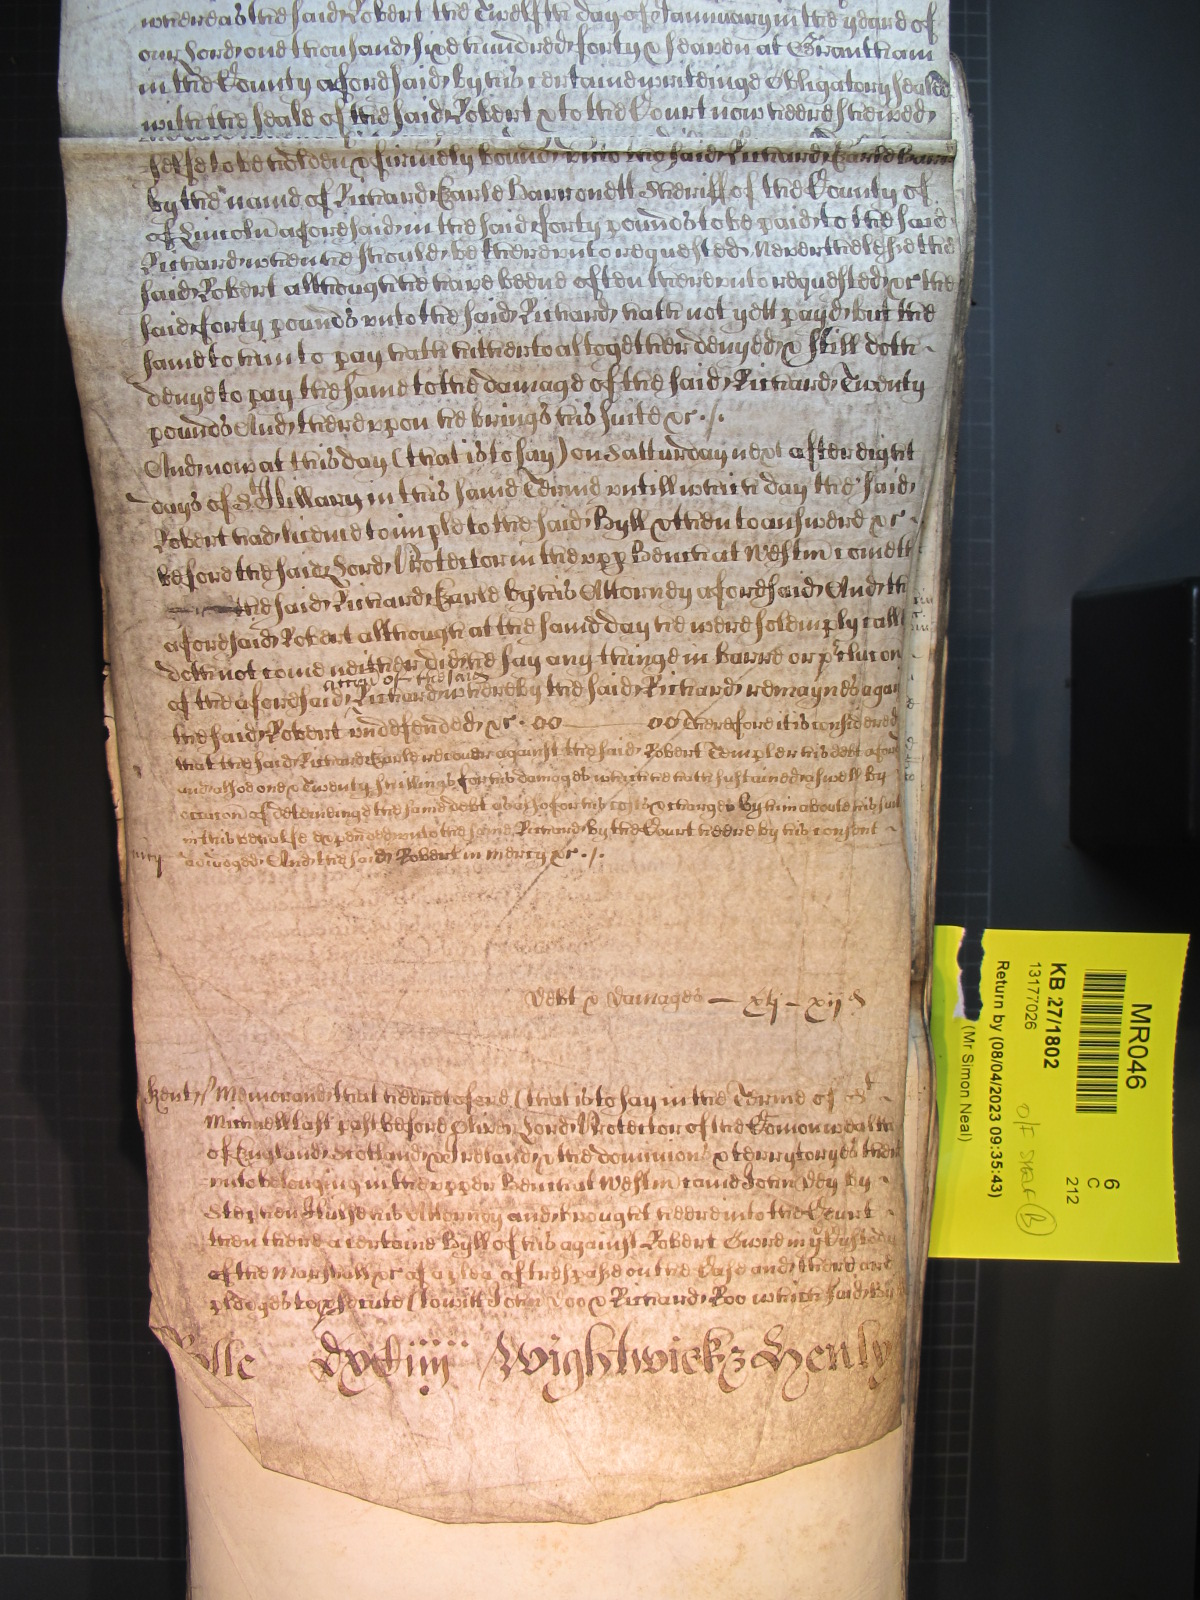 whereas the said Robert the Twelfth day of Januuary in the yeare of
our Lord one thousand sixe hundred forty & seaven at Grantham
in the County aforesaid by his certaine writeinge Obligatory sealed
with the seale of the said Robert & to the Court now heere shewed
selfe to be holden & firmely bound unto the said Richard Earle
by the name of Richard Earle Barronett Sheriff of the County of
of Lincoln aforesaid in the said forty pounds to be paid to the said
Richard when he should be thereunto requested, Neverthelesse the
said Robert although he have beene often thereunto requested &c the
said forty pounds unto the said Richard hath not yett payd but the
same to him to pay hath hitherto altogether denyed & still doth
denye to pay the same to the damage of the said Richard Twenty
pounds And thereuppon he brings his suite &c ./.
And now at this day (that is to say) on Satturday next after eight
days of St Hillary in this same Terme untill which day the said
Robert had licence to imple to the said Byll & then to answere &c
before the said Lord Protector in the upp Bench at Westm cometh
the said Richard Earle by his Attorney aforesaid And the
aforesaid Robert although at the same day he were solemply call
doth not come neither did he say any thinge in barre or preclucon
accon of the said
of the aforesaid Richard whereby the said Richard remaynes again
the said Robert undefended &c. oo ——— oo Therefore it is considered
that the said Richard Earle recover against the said Robert Templer his debt afore
and alsoe one & Twenty shillings for his damages which he hath sustained aswell by
occacon of deteineinge the same debt as also for his costs & charges by him about his suit
in this behalfe expended unto the same Richard by the Court heere by his consent
adiudged And the said Robert in mercy &c ./.
mcy
Debt & Damages — xlj — xij s
Kent ss Memorand that heeretofore (that is to say in the Terme of St
Michaell last past before Oliver Lord Protector of the Comonwealth
of England Scotland & Ireland & the dominions & terrytoryes there
unto belonging in the upper Bench at Westm came John Dey by
Stephen his Attorney and brought heere into the Court
then there a certaine Byll of his against Robert in ye Custody
of the Marshall &c of a plea of trespase on the Case and there are
pledges to prosecute (to witt John Doo & Richard Roo which said Byll
Rolle Dxxiiij Wightwick & Henly
MR046
6
C
212
KB 27/1802
13177026
O/F SHELF B
Return by (08/04/2023 09:35:43)
(Mr Simon Neal)